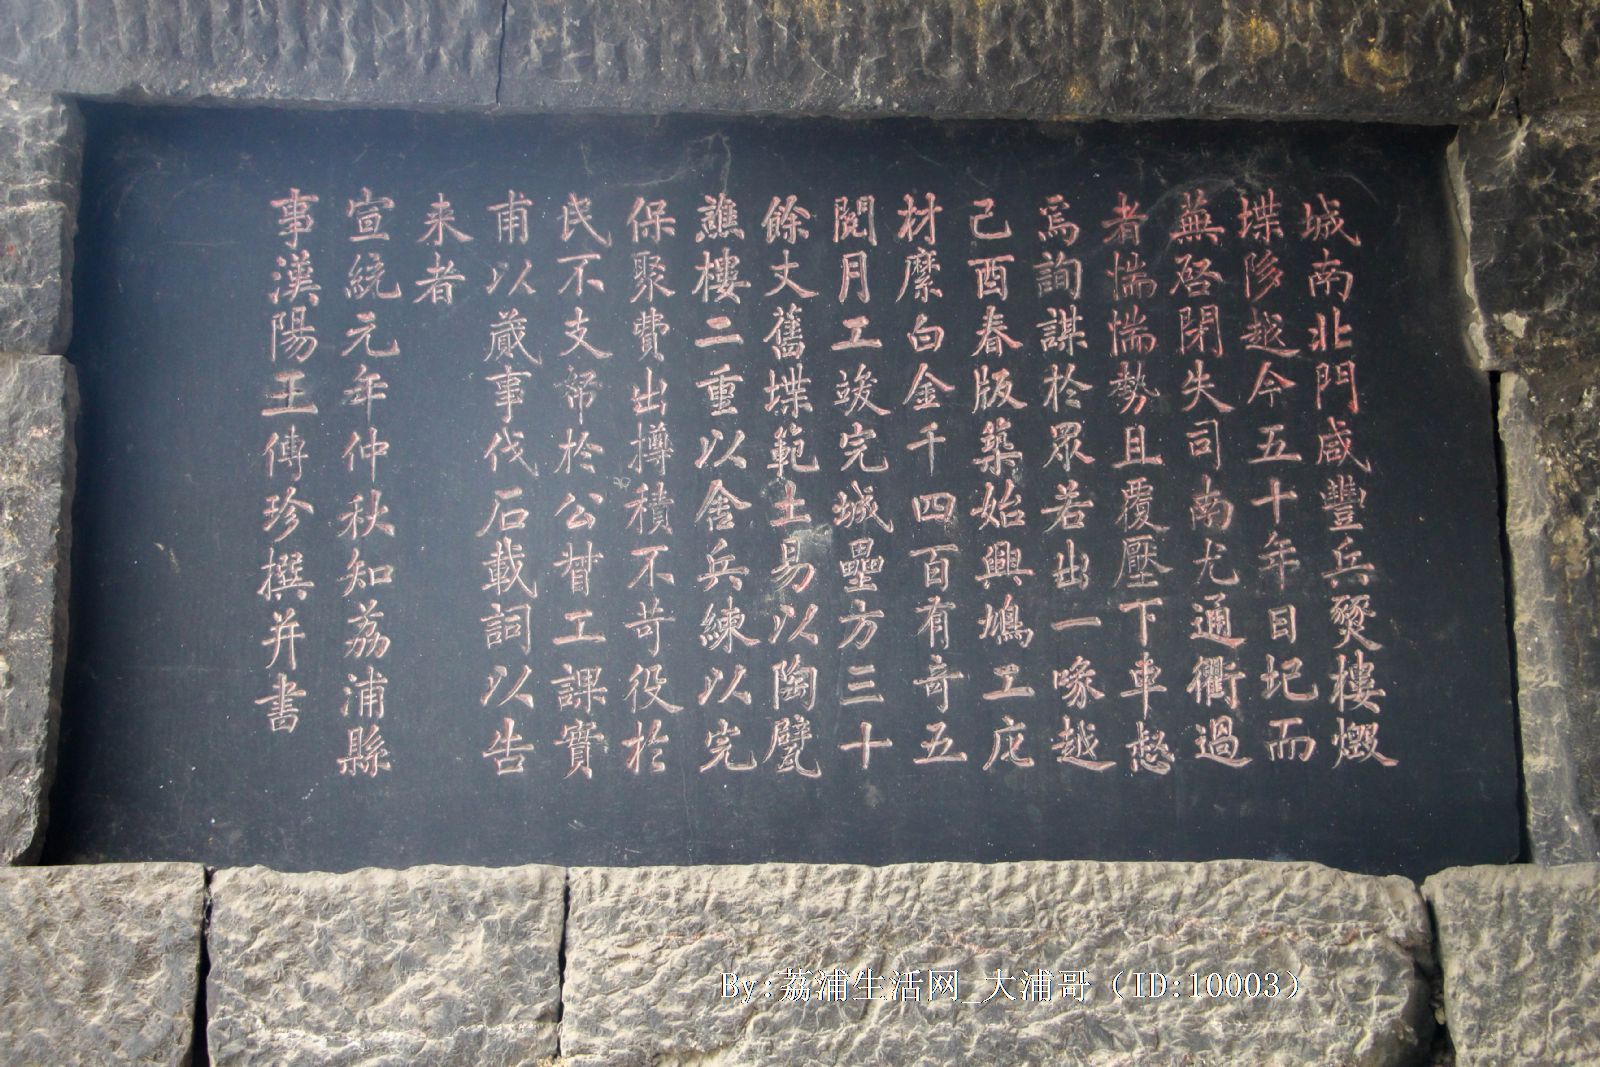 城南北門咸豐兵燹樓燬
堞陊越今五十年日圮而
蕪啓閉失司南尤通衢過
者惴惴勢且覆壓下車愁
焉詢謀於眾若出一喙越
己酉春版築始興鳩工庀
材縻白金千四百有奇五
閱月工竣完城壘方三十
餘丈舊堞範土易以陶甓
譙樓二重以舍兵練以完
保聚費出撙積不苛役於
民不支帑於公督工課實
甫以蕆事伐石載詞以告
来者
宣統元年仲秋知荔浦縣
事漢陽王傅珍撰并書
By:荔浦生活网_大浦哥（ID:10003）